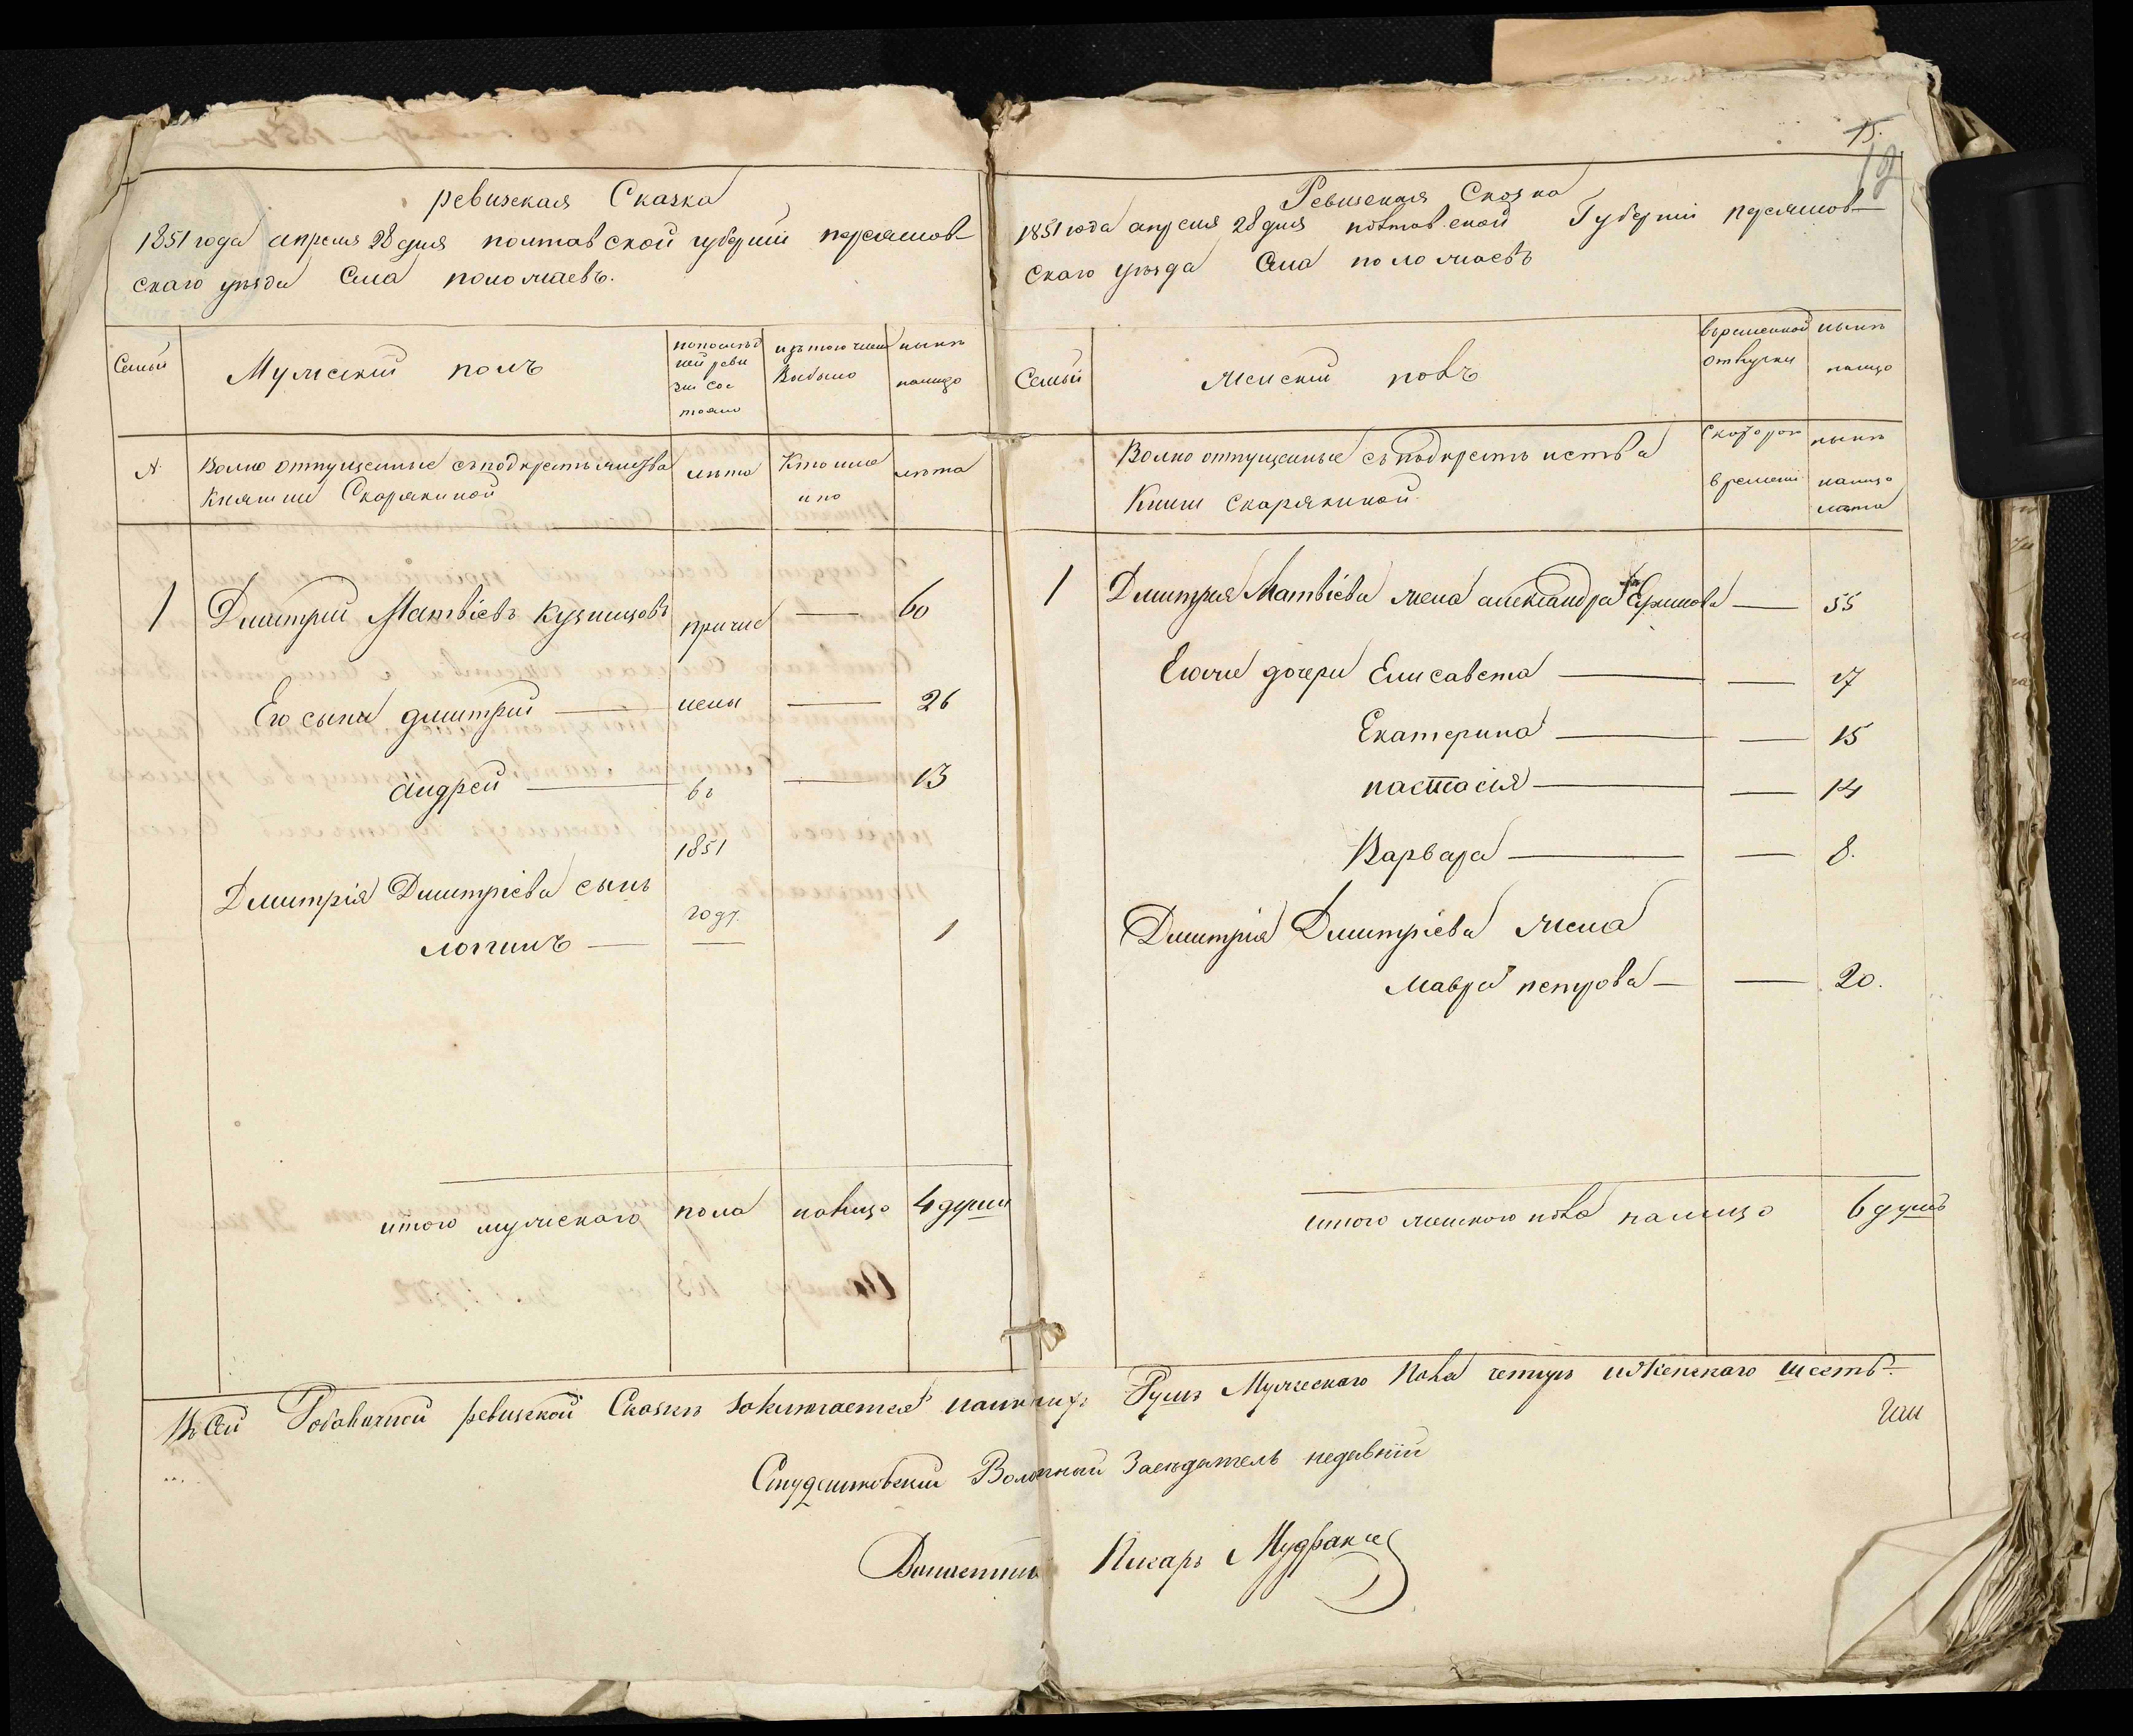 15.
12
ревизская Сказка
1851 года апреля 28 дня полтавской губернии переяслов
скаго уезда Села положаевъ.
Семьи
Мужскій полъ
попослед
ней реви
зии сос
тояло
изтого числа
Выбыло
ныне
налицо
№
Волно отпущенные съподкрепъ
Княгини Скорякиной
лета
Кто имя
ино
лета
1
Дмитрий Матвіевъ Кузнецовъ
причис
60
Его сыни дмитрий
лены
26
андрей
въ
13
1851
Дмитрія Дмитріева сынъ
году.
логинъ
1
итого мужескаго пола налицо 4 души
Ревизская Сказка
1851 года апреля 28 дня полтавской Губерніи переяслов
скаго уезда Села положаевъ
Семьи
женскій полъ
Временной
отлучки
ныне
налицо
Волно отпущенные
Княги Скорякиной
Скоторого
времени
ныне
налицо
лета
1
Дмитрия Матвіева жена александра Ефимова
55
Егоже дочери Елисавета
17
Екатерина
15
настасія
14
Варвара
8.
Дмитрія Дмитріева жена
Мавра петрова
20.
итого женского пола налицо
6 душъ
Въ Сей ревизской Сказке заключается наличныхъ Душъ Мужескаго Пола четыре иЖенскаго шесть
Студениковский Волостный Заседатель недавній
Волостный Писарь